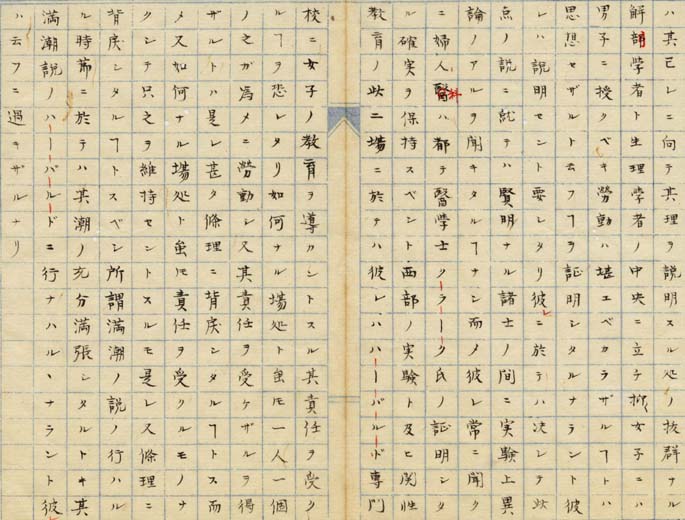 ハ其己レニ向テ其理ヲ説明スル処ノ抜群
解剖学者ト生理学者ノ中央ニ立テ抑女子ニハ
男子ニ授クベキ勞動ハ堪エベカラザルヿトハ
思想セザルト云フヿヲ証明シタルナラント彼
レハ説明セント要シタリ彼レニ於テハ决シテ此
点ノ説ニ就テハ賢明ナル諸士ノ間ニ実験上異
論ノアルヲ聞キタルヿナシ而メ彼レ常ニ聞ク
ニ婦人醫科ハ都テ醫学士クラーク氏ノ証明シタ
ル確実ヲ保持スベシト西部ノ実験ト及ヒ関性
教育ノ此ニ場ニ於テハ彼レハハーバルド専門
校ニ女子ノ教育ヲ導カントスル其責任ヲ受ク
ルヿヲ悲レタリ如何ナル場処ト雖モ一人一個
ノ之ガ為メニ勞動シ又其責任ヲ受ケザルヲ得
ルヿハ是レ甚タ條理ニ背戻シタルヿトス而
メ又如何ナル場処ト雖モ責任ヲ受クルモノナ
クシテ只之ヲ維持セントスルモ是レ又條理ニ
背戻シタルヿトスベシ所謂満潮ノ説ノ行ハル
ル時節ニ於テハ其潮ノ充分満張シタルトキ其
満潮説ノハーバルドニ行ナハルヽナラント彼レ
ハ云フニ過キザルナリ